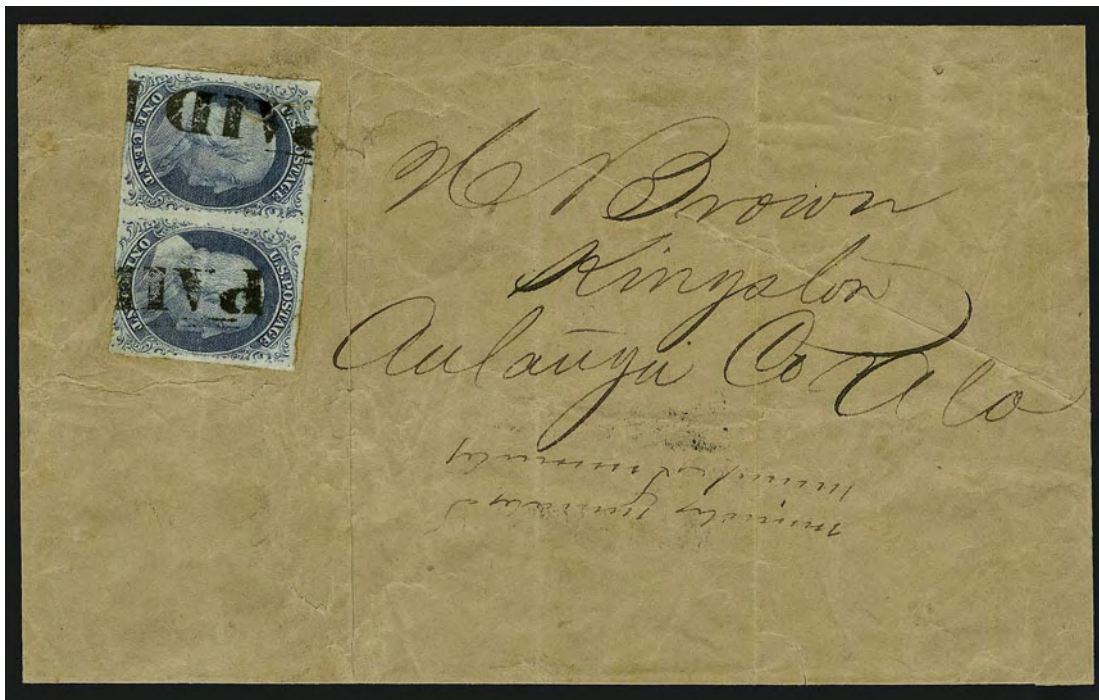 U.S. POSTAGE
ONE CENT
PAID
U.S. POSTAGE
ONE CENT
PAI
H Brown
Kingston
Autauga Co Ala